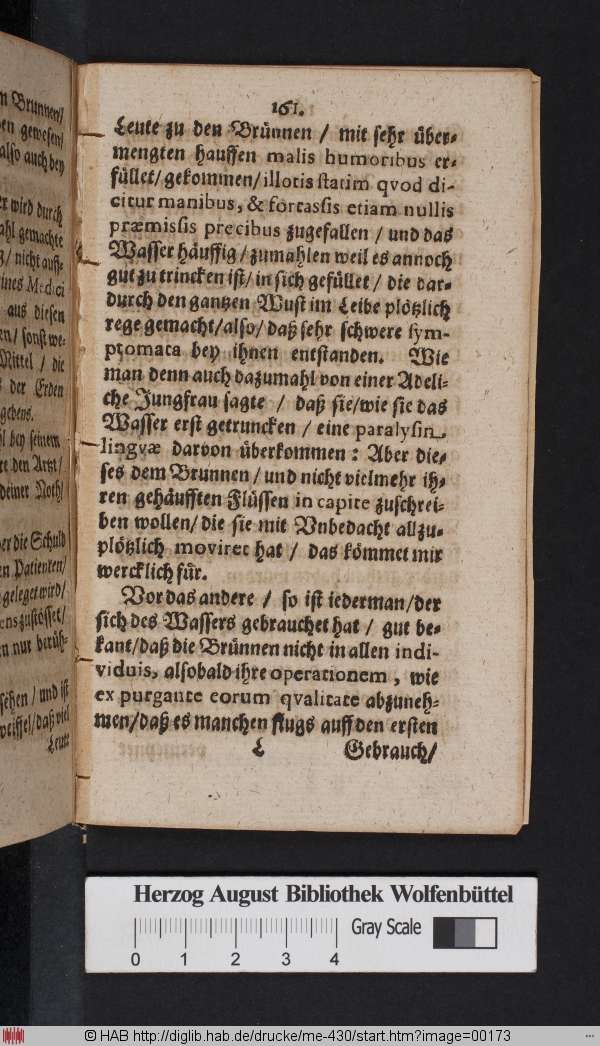 n Brunnen/
en gewesen/
also auch bey
r wird durch
ahl gemachte
/ nicht auff-
ines Medici
aus diesen
en/ sonst we-
Mittel / die
s der Erden
gebens.
l bey seinem
re den Artzt/
deiner Noth/
er die Schuld
en Patienten/
geleget wird/
ens zustösset/
n nur berüh-
sehen / und ist
weiffel/ daß viel
Leute
161.
Leute zu den Brünnen / mit sehr über-
mengten hauffen malis humoribus er-
füllet/ gekommen/ illotis statim qvod di-
citur manibus, & fortassis etiam nullis
præmissis precibus zugefallen / und das
Wasser häuffig/ zumahlen weil es annoch
gut zu trincken ist/ in sich gefüllet / die dar-
durch den gantzen Wust im Leibe plötzlich
rege gemacht/ also/ daß sehr schwere sym-
ptomata bey ihnen entstanden. Wie
man denn auch dazumahl von einer Adeli-
che Jungfrau sagte / daß sie/ wie sie das
Wasser erst getruncken / eine paralysin
lingvæ darvon überkommen : Aber die-
ses dem Brunnen/ und nicht vielmehr ih-
ren gehäufften Flüssen in capite zuschrei-
ben wollen/ die sie mit Vnbedacht allzu-
plötzlich moviret hat / das kömmet mir
wercklich für.
Vor das andere / so ist iederman/ der
sich des Wassers gebrauchet hat / gut be-
kant/ daß die Brünnen nicht in allen indi-
viduis, alsobald ihre operationem, wie
ex purgante eorum qvalitate abzuneh-
men/ daß es manchen flugs auff den ersten
L Gebrauch/
Herzog August Bibliothek Wolfenbüttel
Gray Scale
0 1 2 3 4
© HAB http://diglib.hab.de/drucke/me-430/start.htm?image=00173